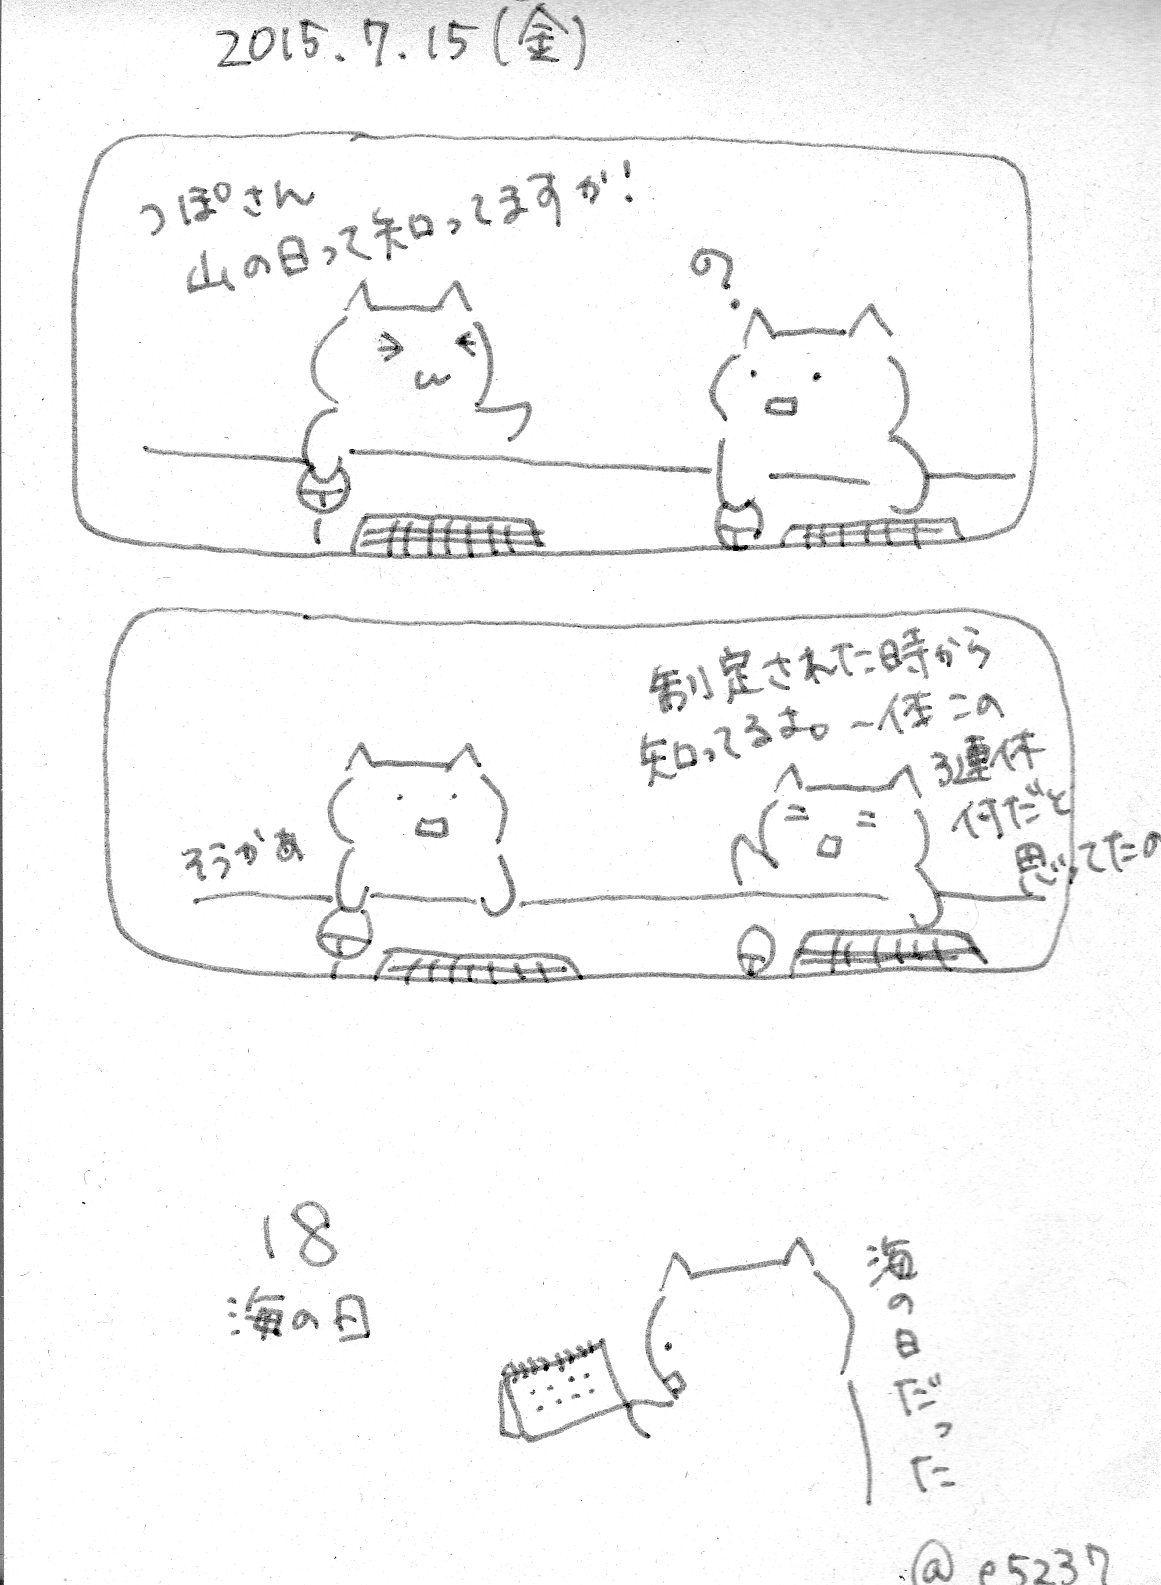 2015.7.15(金)
つぽさん
山の日って知ってますか!
?
制定された時から
知ってるよ。一体この
3連休
何だと
思ってたの
そうかあ
18
海の日
海の日だった
@e5237